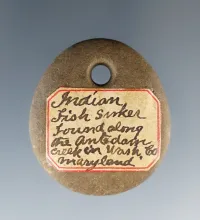 Indian
Fish Sinker
Found along
the Antedam
Creek in Wash. Co
Maryland